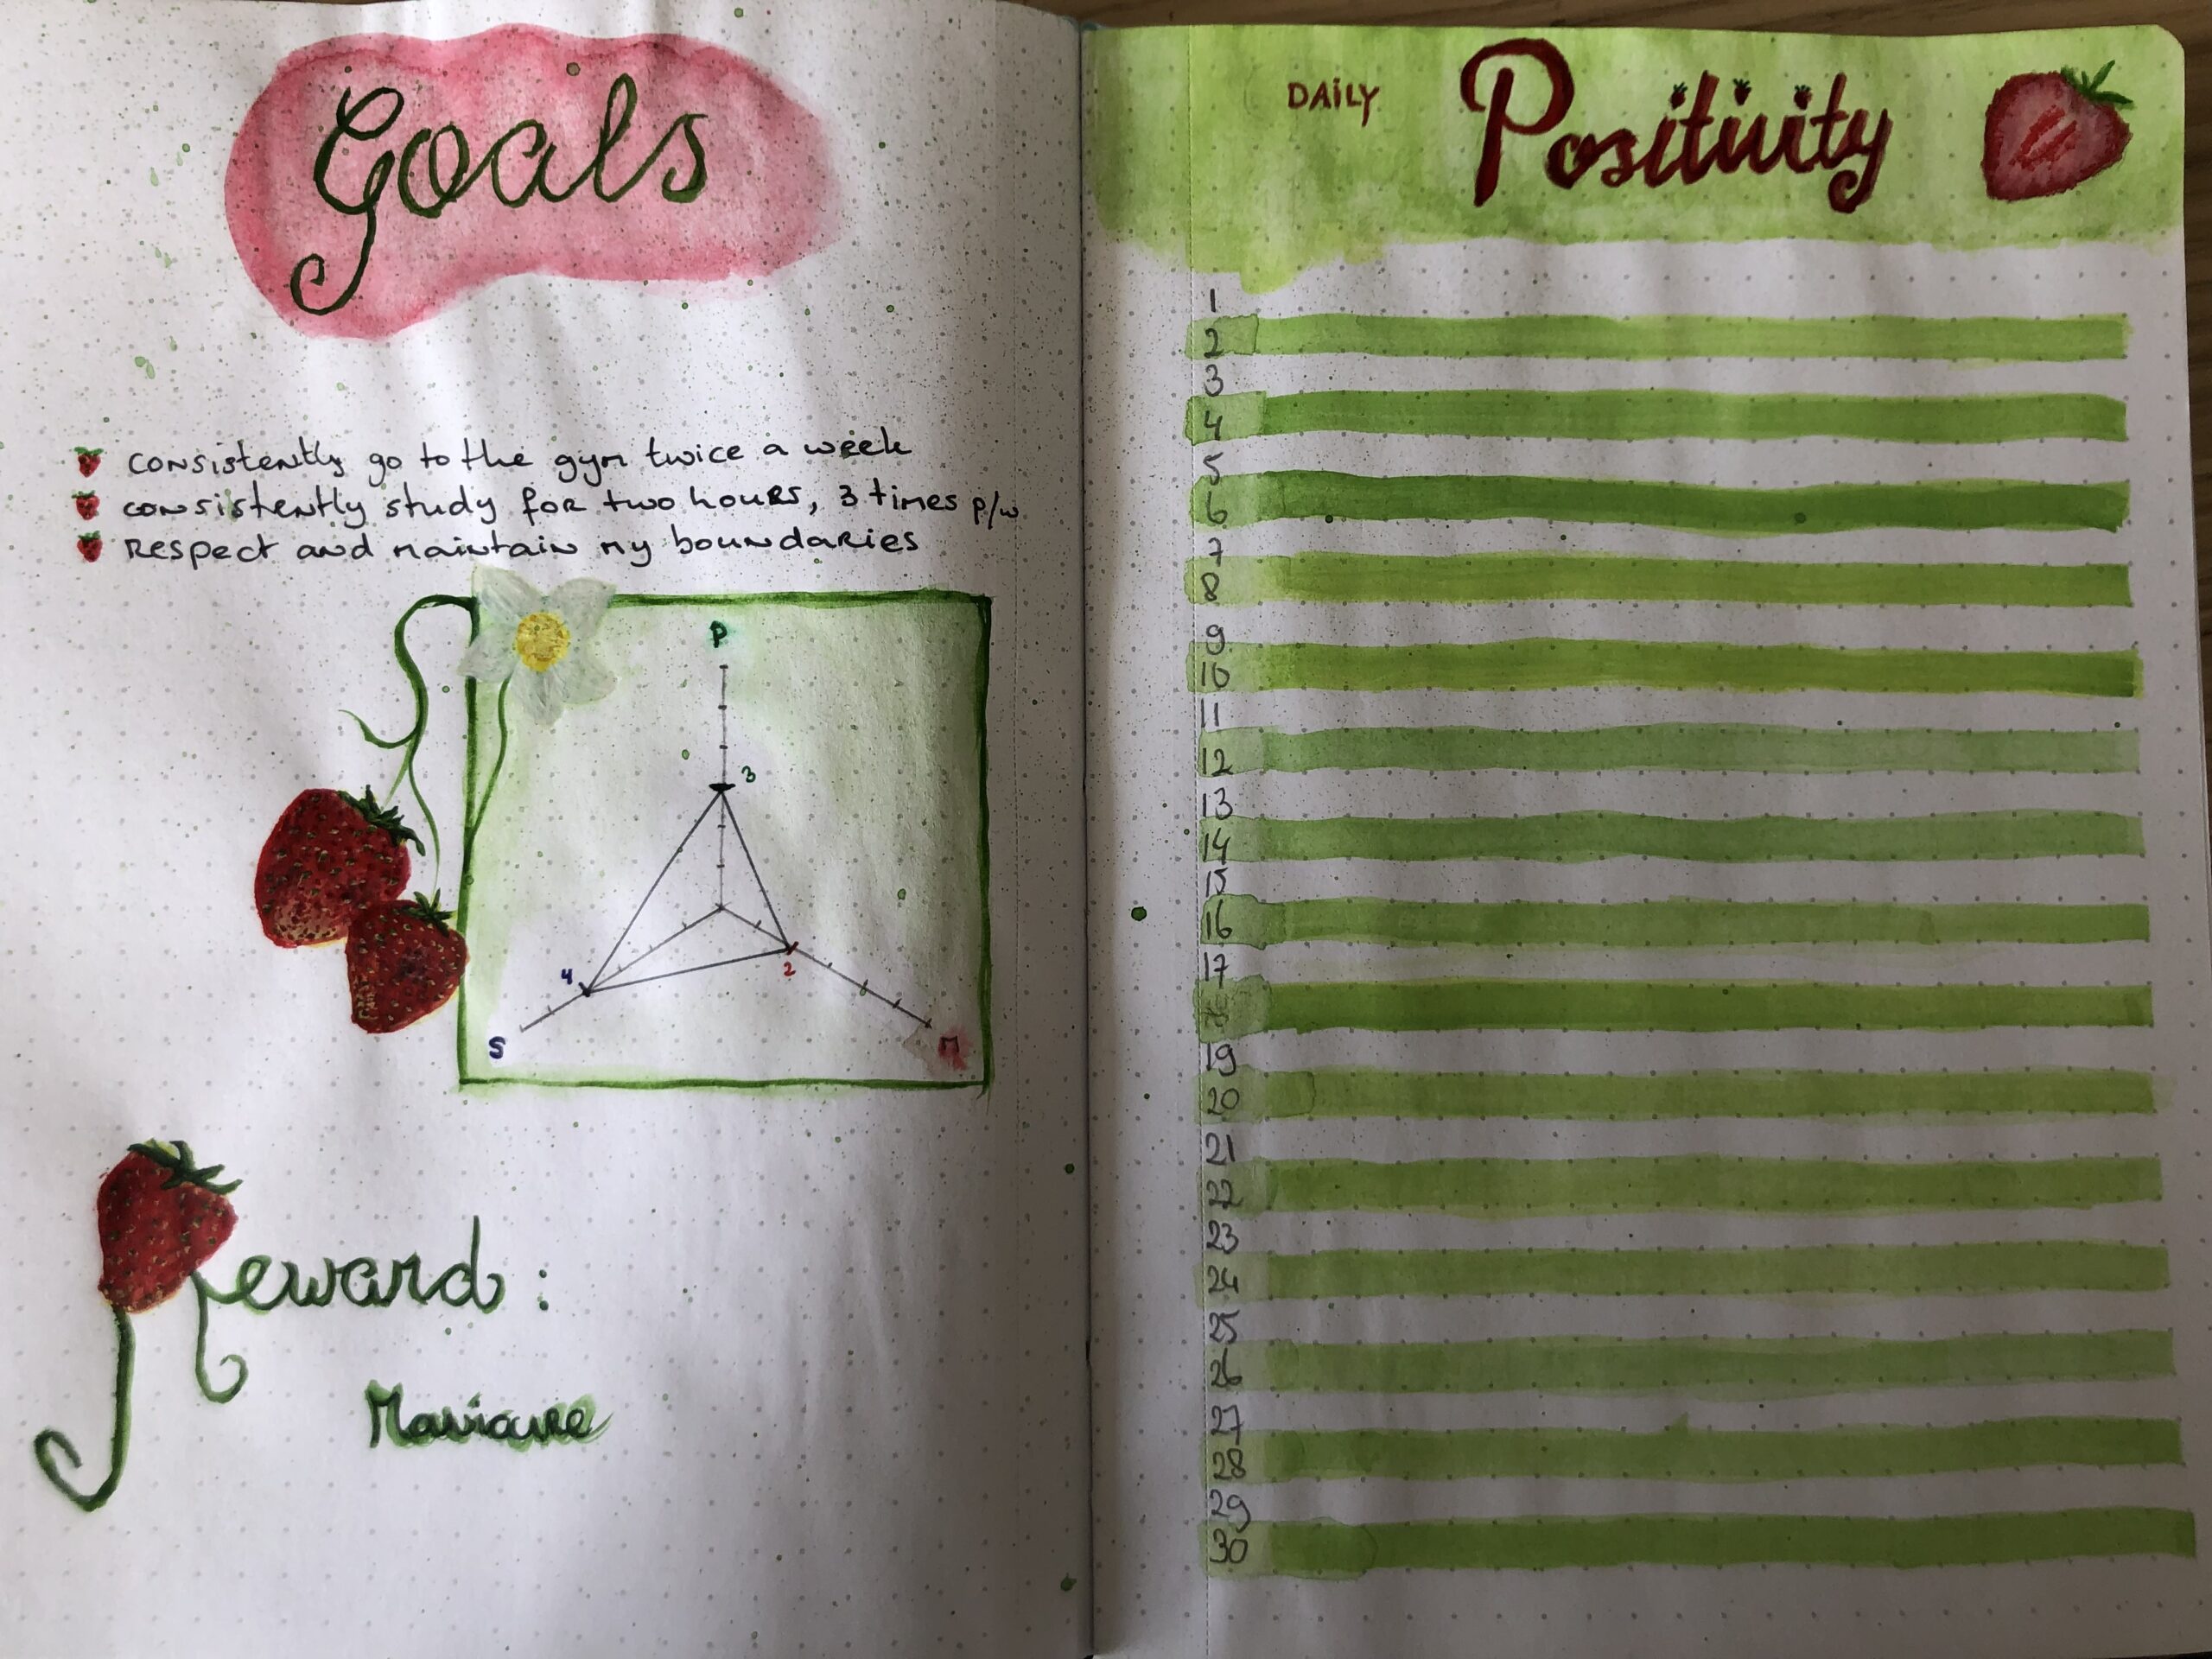 Goals
consistently go to the gym twice a week
consistently study for two hours, 3 times p/w
Respect and maintain my boundaries
P
3
4
2
S
M
Reward :
Manicure
DAILY Positivity
1
2
3
4
5
6
7
8
9
10
11
12
13
14
15
16
17
18
19
20
21
22
23
24
25
26
27
28
29
30